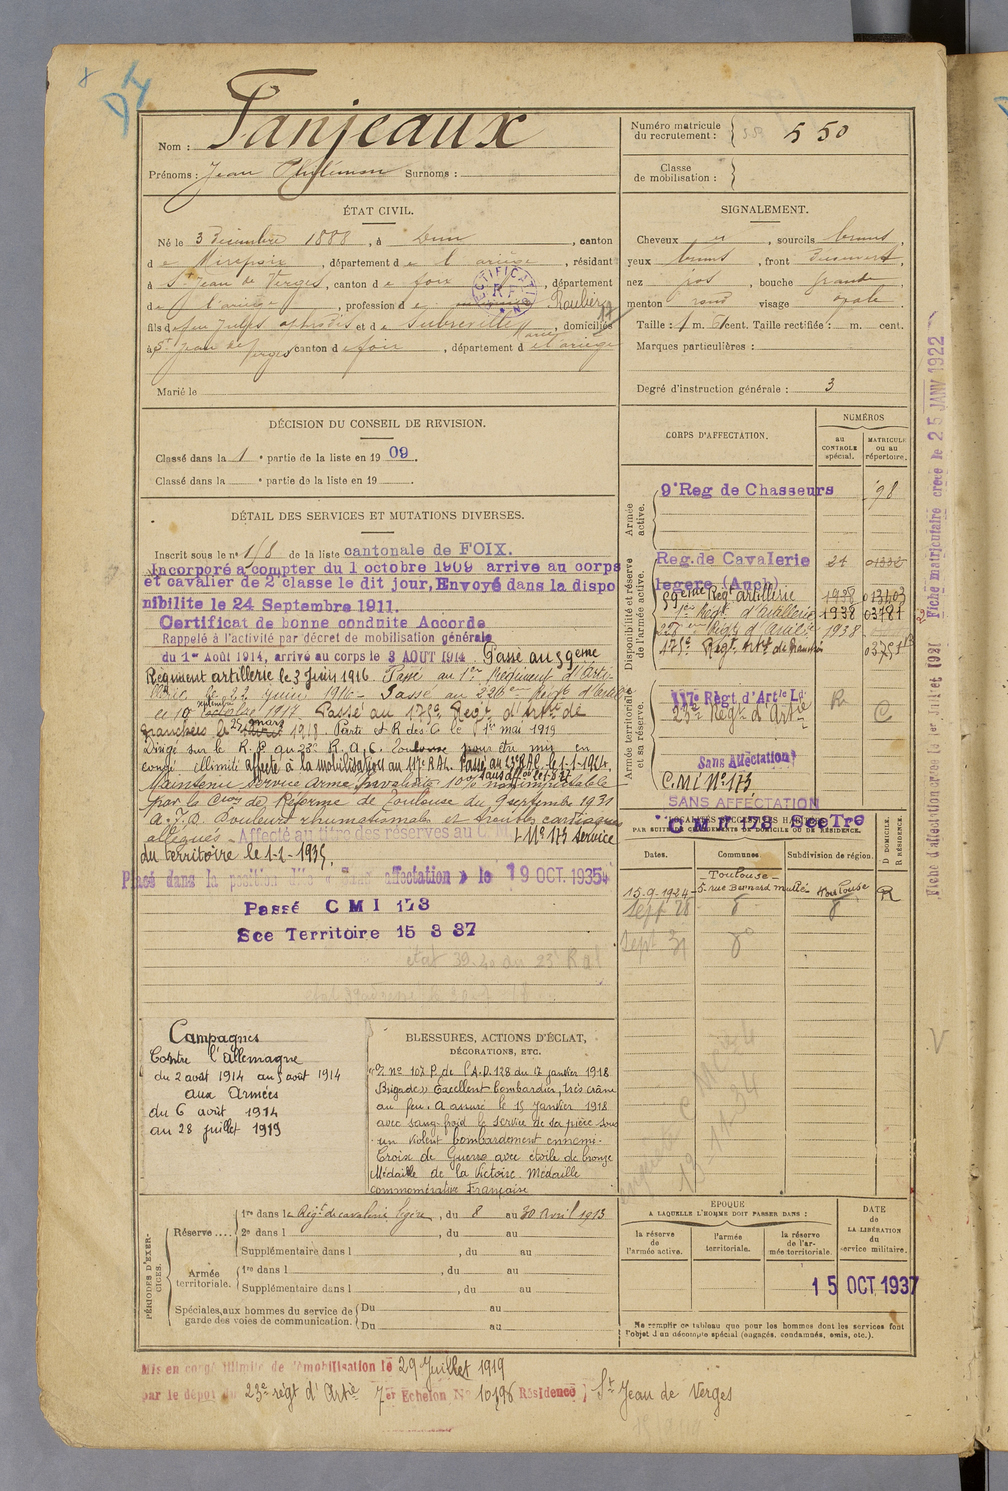 P4
Nom : Panjeaux
Prénoms : Jean Philémon Surnoms :
Numéro matricule
du recrutement : 550
Classe
de mobilisation :
ÉTAT CIVIL.
Né le 3 Décembre 1888, à Dun, canton
de Mirepoix, département de l'ariège, résidant
à St Jean de Verges, canton de foix, département
de l'ariège, profession de
fils de feu Jules et de Subreville, domiciliés
à St Jean de Verges canton de foix, département de l'ariège
Marié le
SIGNALEMENT.
Cheveux , sourcils bruns,
yeux bruns, front découvert,
nez gros, bouche grande
menton rond visage ovale
Taille : 1 m. cent. Taille rectifiée : m. cent.
Marques particulières :
Degré d'instruction générale : 3
DÉCISION DU CONSEIL DE REVISION.
Classé dans la 1e partie de la liste en 1909.
Classé dans la e partie de la liste en 19 .
DÉTAIL DES SERVICES ET MUTATIONS DIVERSES.
Inscrit sous le n° 118 de la liste cantonale de FOIX.
Incorporé à compter du 1 octobre 1909 arrive au corps
et cavalier de 2e classe le dit jour, Envoyé dans la dispo
nibilite le 24 Septembre 1911.
Certificat de bonne conduite Accorde
Rappelé à l'activité par décret de mobilisation générale
du 1er Août 1914, arrivé au corps le 3 AOUT 1914 Passé au 59eme
Régiment artillerie le 3 Juin 1916. Passé au 1er Régiment d'Arti-
llerie le 22 juin 1916 - Passé au 226eme Régt d'Artil
le 10 septembre 1917. Passé au 175e Régt d'Artie de
tranchées le 25 mars 1918 Parti et R des C le 1er mai 1919
Dirigé sur le R. P. au 23e R. A. C. Toulouse pour être mis en
congé illimité affecté à la mobilisation au 117e R.A.L. Passé au 23e R.A.C. le 1-1-1924.
Maintenu service armé Invalidité 10% non imputable
par la Cion de Réforme de Toulouse du 9 septembre 1931
A.F.D. Douleurs rhumatismales et troubles cardiaques
allégués - Affecté au titre des réserves au C M I N° 173 service
du territoire le 1-2-1935.
Placé dans la position dite « Sans affectation » le 19 OCT. 1935
Passé C M I 173
Sce Territoire 15 3 37
etat 39-40 au 23e Ral
CORPS D'AFFECTATION.
NUMÉROS
au
CONTROLE
spécial.
MATRICULE
ou au
répertoire.
Armée
active.
9e Reg de Chasseurs 98
Disponibilité et réserve
de l'armée active.
Reg. de Cavalerie 21
légère (Auch)
59eme Régt artillerie 1938 013403
1er Régt d'Artillerie 1938 03781
226eme Régt d'Artil 1938
175e Régt Arte de tranchées
Armée territoriale
et sa réserve.
117e Règt d'Artie Lde R
23e Régt d'Artie C
Sans Affectation
C.M.I N° 173
SANS AFFECTATION
C M I 173 Sce Tre
LOCALITÉS SUCCESSIVES HABITÉES
PAR SUITE DE CHANGEMENTS DE DOMICILE OU DE RÉSIDENCE.
Dates.
Communes.
Subdivision de région.
D. DOMICILE.
R. RÉSIDENCE.
- Toulouse -
15.9.1924 5 rue Bernard mulé Toulouse R
Sept 28
Sept 31 do
Campagnes
Contre l'allemagne
du 2 août 1914 au 5 août 1914
aux Armées
du 6 août 1914
au 28 juillet 1919
BLESSURES, ACTIONS D'ÉCLAT,
DÉCORATIONS, ETC.
O/ n° 107 P. de l'A.D. 128 du 17 janvier 1918
Brigade » Excellent bombardier, très crâne
au feu. A assuré le 15 janvier 1918
avec sang-froid le service de sa pièce sous
un violent bombardement ennemi.
Croix de Guerre avec étoile de bronze
Médaille de la Victoire Médaille
commémorative Française
PÉRIODES D'EXERCICES.
Réserve.... 1re dans le Régt de cavalerie légère, du 8 au 30 avril 1913
2e dans l , du au
Supplémentaire dans l , du au
Armée
territoriale. 1re dans l , du au
Supplémentaire dans l , du au
Spéciales, aux hommes du service de
garde des voies de communication. Du au
Du au
ÉPOQUE
A LAQUELLE L'HOMME DOIT PASSER DANS :
la réserve
de
l'armée active.
l'armée
territoriale.
la réserve
de l'ar-
mée territoriale.
DATE
de
LA LIBÉRATION
du
service militaire.
15 OCT. 1937
Ne remplir ce tableau que pour les hommes dont les services font
l'objet d'un décompte spécial (engagés, condamnés, omis, etc.).
Mis en congé illimité de démobilisation le 29 Juillet 1919
par le dépôt du 23e régt d'Artie 7er Echelon N° 10198 Résidence ; St Jean de Verges
Fiche d'affectation créée le 1er Juillet 1921 Fiche matriculaire créée le 25 JANV 1922